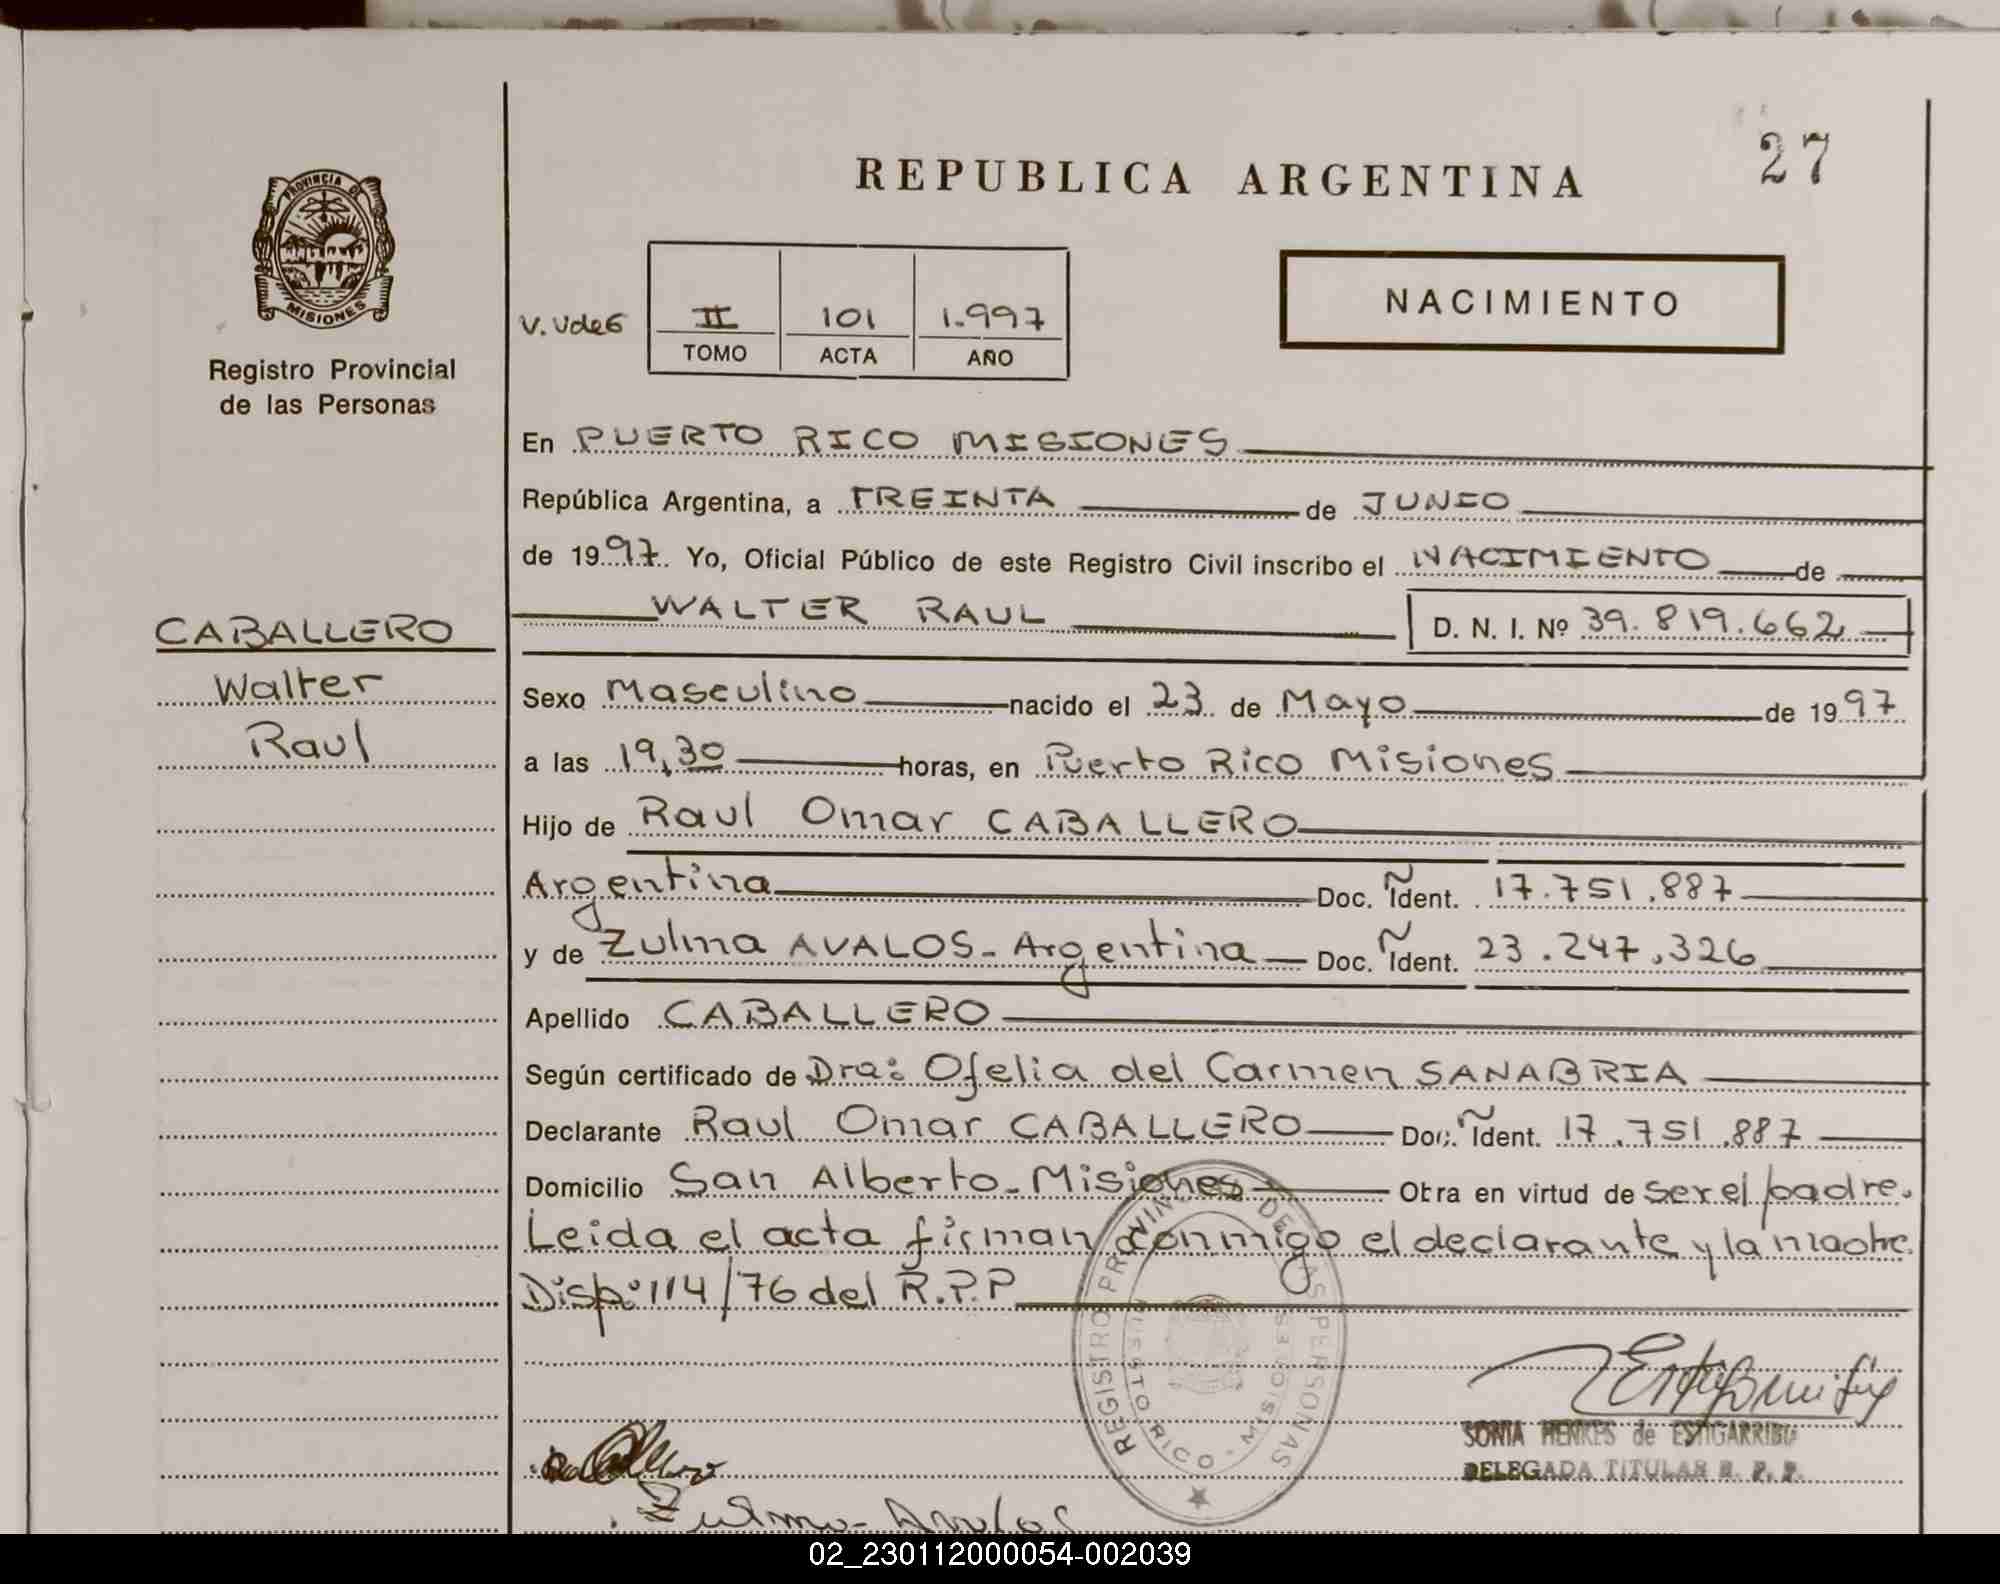 27
REPUBLICA ARGENTINA
PROVINCIA DE
MISIONES
Registro Provincial
de las Personas
V. Vde6
II 101 1.997
TOMO ACTA AÑO
NACIMIENTO
En PUERTO RICO MISIONES
República Argentina, a TREINTA de JUNIO
de 1997. Yo, Oficial Público de este Registro Civil inscribo el NACIMIENTO de
WALTER RAUL D. N. I. Nº 39.819.662
CABALLERO
Walter
Raul
Sexo Masculino nacido el 23 de Mayo de 1997
a las 19,30 horas, en Puerto Rico Misiones
Hijo de Raul Omar CABALLERO
Argentina Doc. Ñ Ident. 17.751.887
y de Zulma AVALOS - Argentina Doc. Ñ Ident. 23.247.326
Apellido CABALLERO
Según certificado de Dra: Ofelia del Carmen SANABRIA
Declarante Raul Omar CABALLERO Doc. Ñ Ident. 17.751.887
Domicilio San Alberto - Misiones Obra en virtud de ser el padre.
Leida el acta firman conmigo el declarante y la madre.
Disp: 114/76 del R.P.P
REGISTRO PROVINCIAL DE LAS PERSONAS
PUERTO RICO - MISIONES
SONIA HENKES de ESTIGARRIBIA
DELEGADA TITULAR R. P. P.
Zulma Avalos
02_230112000054-002039